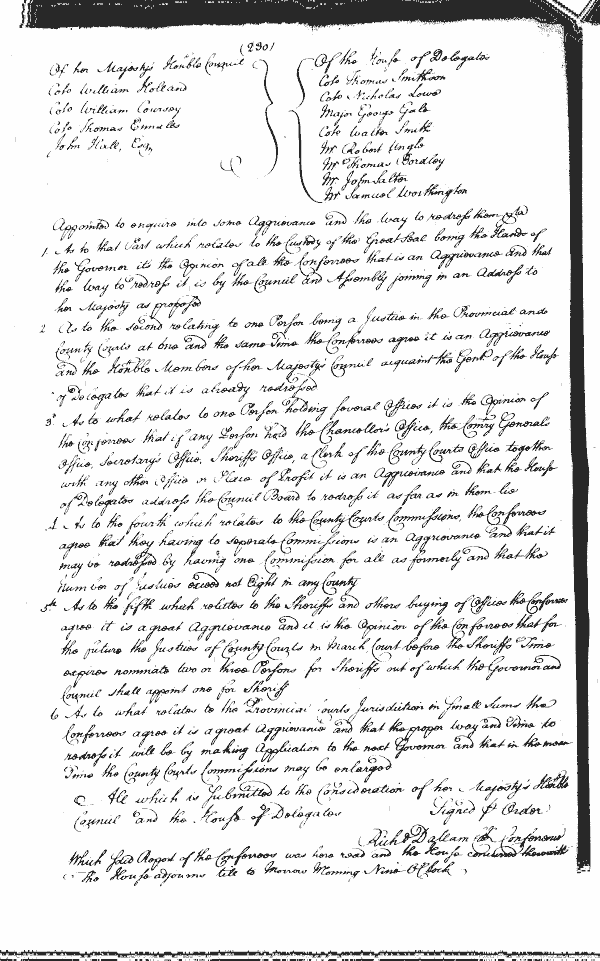 (230)
Of her Majestys Honble Council
Colo William Holland
Colo William Coursey
Colo Thomas Ennalls
John Hall, Esq
Of the House of Delegates
Colo Thomas Smithson
Colo Nicholas Lowe
Major George Gale
Colo Walter Smith
Mr Robert Ungle
Mr Thomas Bordley
Mr John Salter
Mr Samuel Worthington
Appointed to enquire into some Aggrievance and the way to redress them
1 As to that Part which relates to the Custody of the Great Seal being the Hands of
the Governor it's the Opinion of all the Conferrees that is an Aggrievance and that
the way to redress it, is by the Council and Assembly joining in an Address to
her Majesty as proposed
2 As to the second relating to one Person being a Justice in the Provincial and
County Courts at one and the same Time the Conferrees agree it is an Aggrievance
and the Honble Members of her Majesty's Council acquaint the Gent of the House
of Delegates that it is already redressed
3d As to what relates to one Person holding several Offices it is the Opinion of
the Conferrees that if any Person hold the Chancellor's Office, the Comry General's
Office, Secretary's Office, Sheriff's Office, a Clerk of the County Courts Office together
with any other Office or Place of Profit it is an Aggrievance and that the House
of Delegates address the Council Board to redress it as far as in them lie
4 As to the fourth which relates to the County Courts Commissions, the Conferrees
agree that they having to seperate Commissions is an Aggrievance and that it
may be redressed by having one Commission for all as formerly and that the
Number of Justices exceed not Eight in any County
5th As to the fifth which relates to the Sheriffs and others buying of Offices the Conferrees
agree it is a great Aggrievance and it is the Opinion of the Conferrees that for
the future the Justices of County Courts in March Court before the Sheriffs Time
expires nominate two or three Persons for Sheriffs out of which the Governor and
Council shall appoint one for Sheriff
6 As to what relates to the Provincial Courts Jurisdiction in Small Sums the
Conferrees agree it is a great Aggrievance and that the proper way and Time to
redress it will be by making Application to the next Governor and that in the mean
Time the County Courts Commissions may be enlarged
All which is Submitted to the Consideration of her Majesty's Honble
Council and the House of Delegates Signed p Order
Richd Dallam Clk Conferrence
Which said Report of the Conferrees was here read and the House concurred therewith
The House adjourns till to Morrow Morning Nine O'Clock